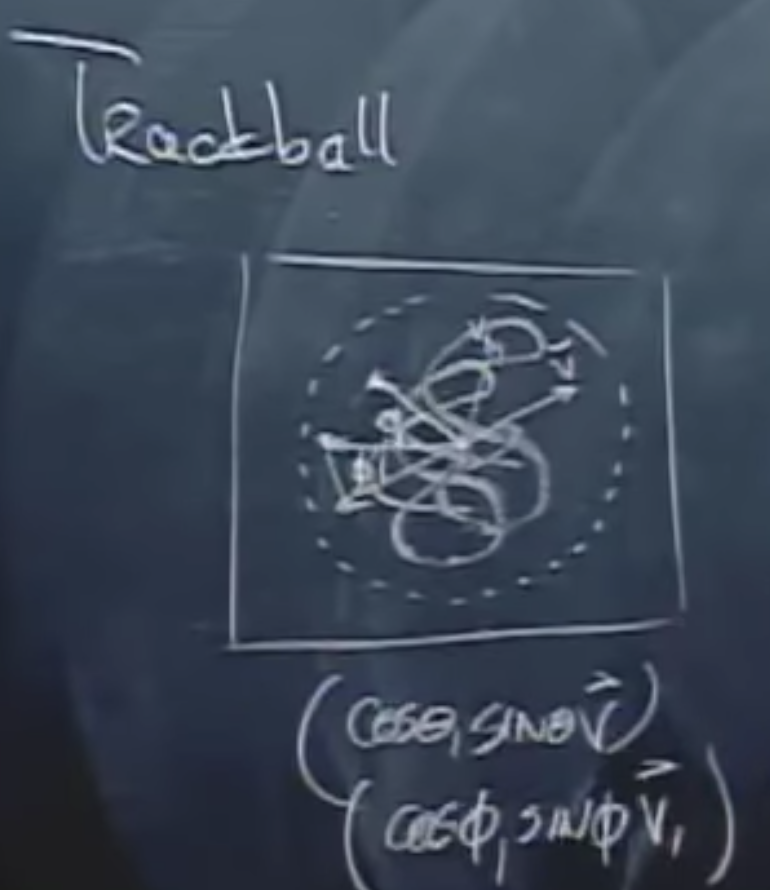 Trackball
V
φ
(cosθ, sinθ V⃗)
(cosφ, sinφ V⃗₁)